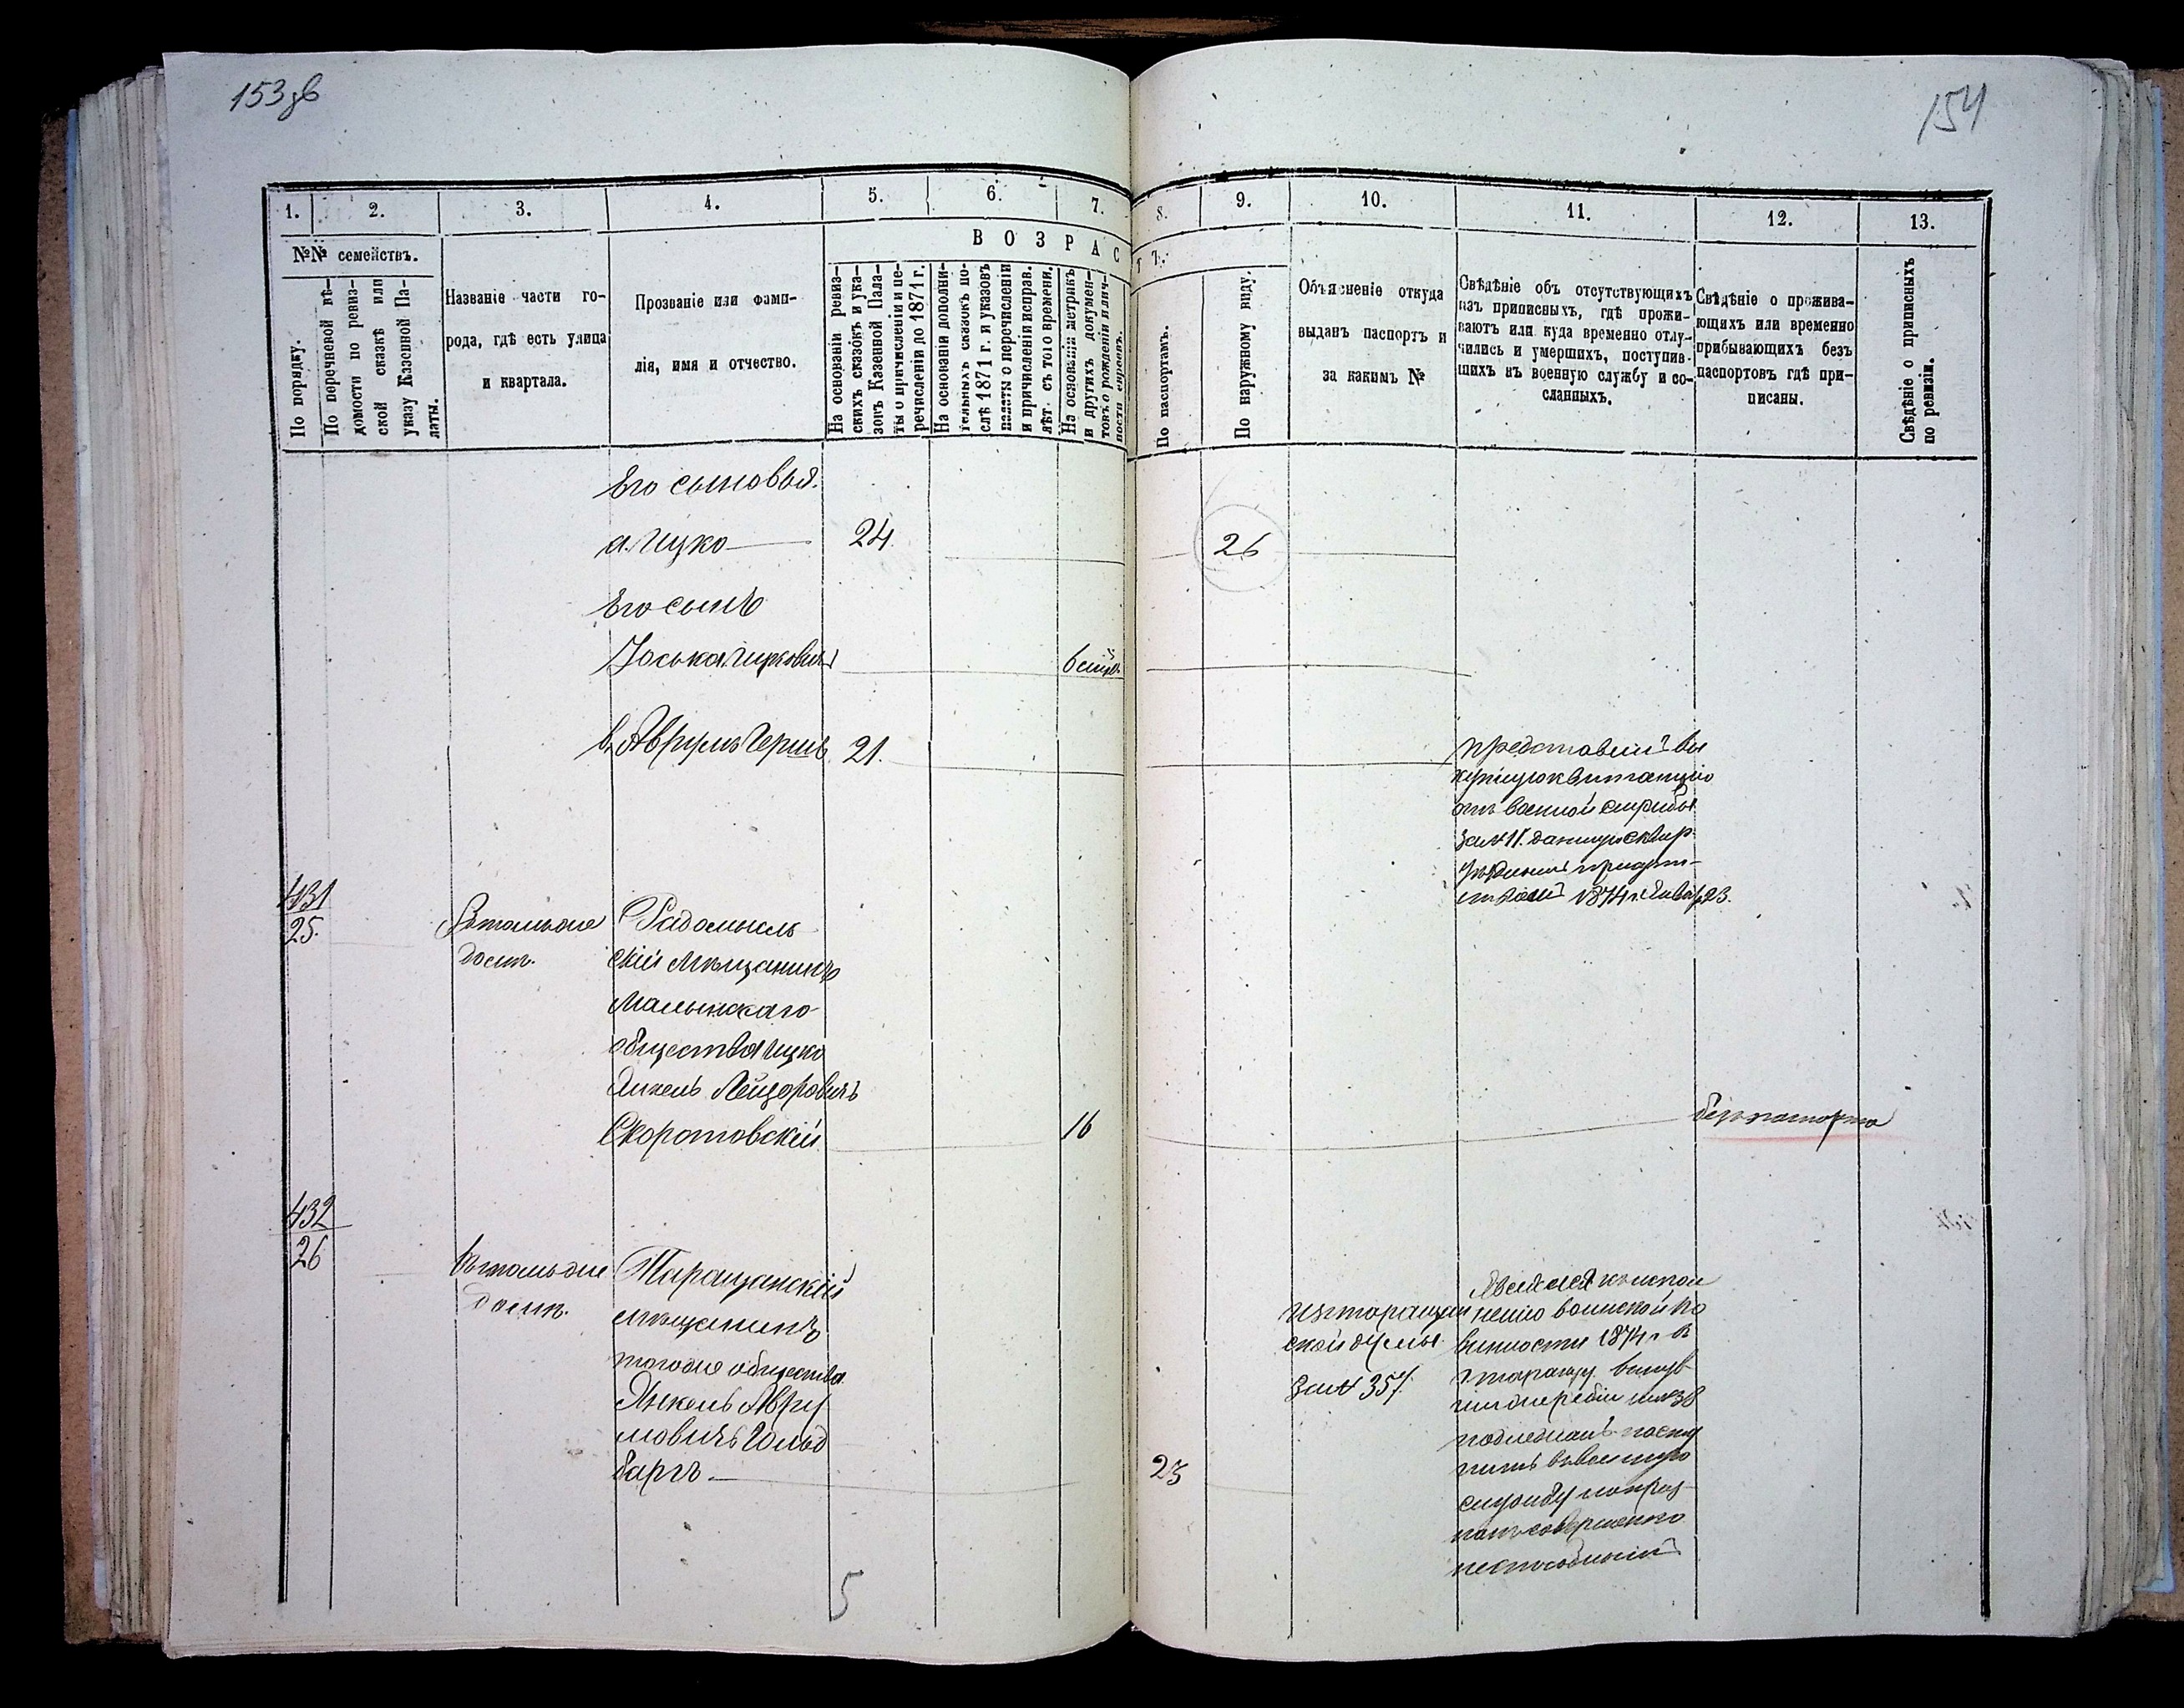 153 зв
154
1.
2.
3.
4.
5.
6.
7.
8.
9.
10.
11.
12.
13.
№№ семействъ.
По порядку.
По перечневой вѣ-
домости по ревиз-
ской сказкѣ или
указу Казенной Па-
латы.
Названіе части го-
рода, гдѣ есть улица
и квартала.
Прозваніе или фами-
лія, имя и отчество.
ВОЗРАСТЪ.
На основаніи ревиз-
скихъ сказокъ и ука-
зовъ Казенной Пала-
ты о причисленіи и пе-
речисленіи до 1871 г.
На основаніи дополни-
тельныхъ сказокъ по-
слѣ 1871 г. и указовъ
палаты о перечисленіи
и причисленіи исправ.
лѣт. съ того времени.
На основаніи метрикъ
и другихъ докумен-
товъ о рожденіи и лич-
ности евреевъ.
По паспортамъ.
По наружному виду.
Объясненіе откуда
выданъ паспортъ и
за какимъ №
Свѣдѣніе объ отсутствующихъ
изъ приписныхъ, гдѣ прожи-
ваютъ или куда временно отлу-
чились и умершихъ, поступив-
шихъ въ военную службу и со-
сланныхъ.
Свѣдѣніе о прожива-
ющихъ или временно
прибывающихъ безъ
паспортовъ гдѣ при-
писаны.
Свѣдѣніе о приписныхъ
по ревизіи.
Его сыновья.
а. Ицко 24 26
Его сынъ
Іоська Ицковичъ
в. Аврумъ Гершъ 21.
представилъ
квитанцію
отъ военной службы
за № 11.
1874 г. Января 23.
431
25.
Въ томъ же
домѣ.
Радомысль
скій мѣщанинъ
Малынскаго
общества Ицко
Янкель Лейзоровичъ
Скоротовскій 16
безъ паспорта
432
26
Въ томъ же
домѣ.
Таращанскій
мѣщанинъ
того же общества
Янкель Авру
мовичъ Гольд
баргъ 23
Изъ таращан
ской думы
за № 357.
Явился къ испол
ненію воинской по
винности 1874 г. въ
г. таращу вынув
шій жеребій за № 38
подлежалъ посту
пить въ военную
службу но приз
нанъ совершенно
неспособнымъ
5